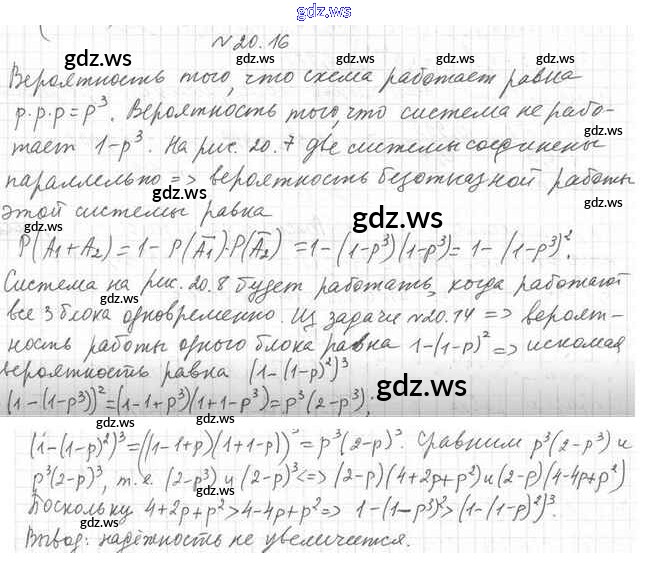 gdz.ws
№20.16
gdz.ws gdz.ws gdz.ws
Вероятность того, что схема работает равна
p·p·p=p³. Вероятность того, что система не рабо-
gdz.ws
тает 1-p³. На рис. 20.7 две системы соединены
параллельно => вероятность безотказной работы
gdz.ws
этой системы равна
gdz.ws
P(A₁+A₂) = 1- P(A̅₁)·P(A̅₂) = 1-(1-p³)(1-p³)= 1-(1-p³)².
gdz.ws
Система на рис. 20.8 будет работать, когда работают
gdz.ws
все 3 блока одновременно. Из задачи №20.14 => вероят-
gdz.ws
ность работы одного блока равна 1-(1-p)² => искомая
gdz.ws
вероятность равна (1-(1-p)²)³
gdz.ws
(1-(1-p³))²=(1-1+p³)(1+1-p³)=p³(2-p³);
gdz.ws
(1-(1-p)²)³=((1-1+p)(1+1-p))³=p³(2-p)³. Сравним p³(2-p³) и
gdz.ws
p³(2-p)³, т.е. (2-p³) и (2-p)³<=> (2-p)(4+2p+p²) и (2-p)(4-4p+p²)
gdz.ws gdz.ws
Поскольку 4+2p+p²>4-4p+p²=> 1-(1-p³)²>(1-(1-p)²)³.
gdz.ws gdz.ws
Вывод: надёжность не увеличится.